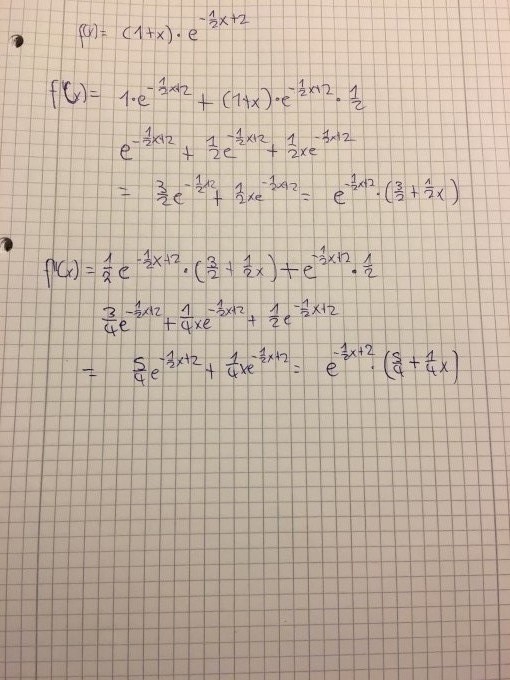 f(x) = (1+x)·e^{-\frac{1}{2}x+2}
f'(x) = 1·e^{-\frac{1}{2}x+2} + (1+x)·e^{-\frac{1}{2}x+2}·\frac{1}{2}
e^{-\frac{1}{2}x+2} + \frac{1}{2}e^{-\frac{1}{2}x+2} + \frac{1}{2}xe^{-\frac{1}{2}x+2}
= \frac{3}{2}e^{-\frac{1}{2}x+2} + \frac{1}{2}xe^{-\frac{1}{2}x+2} = e^{-\frac{1}{2}x+2}·(\frac{3}{2}+\frac{1}{2}x)
f''(x) = \frac{1}{2}e^{-\frac{1}{2}x+2}·(\frac{3}{2}+\frac{1}{2}x) + e^{-\frac{1}{2}x+2}·\frac{1}{2}
\frac{3}{4}e^{-\frac{1}{2}x+2} + \frac{1}{4}xe^{-\frac{1}{2}x+2} + \frac{1}{2}e^{-\frac{1}{2}x+2}
= \frac{5}{4}e^{-\frac{1}{2}x+2} + \frac{1}{4}xe^{-\frac{1}{2}x+2} = e^{-\frac{1}{2}x+2}·(\frac{5}{4}+\frac{1}{4}x)